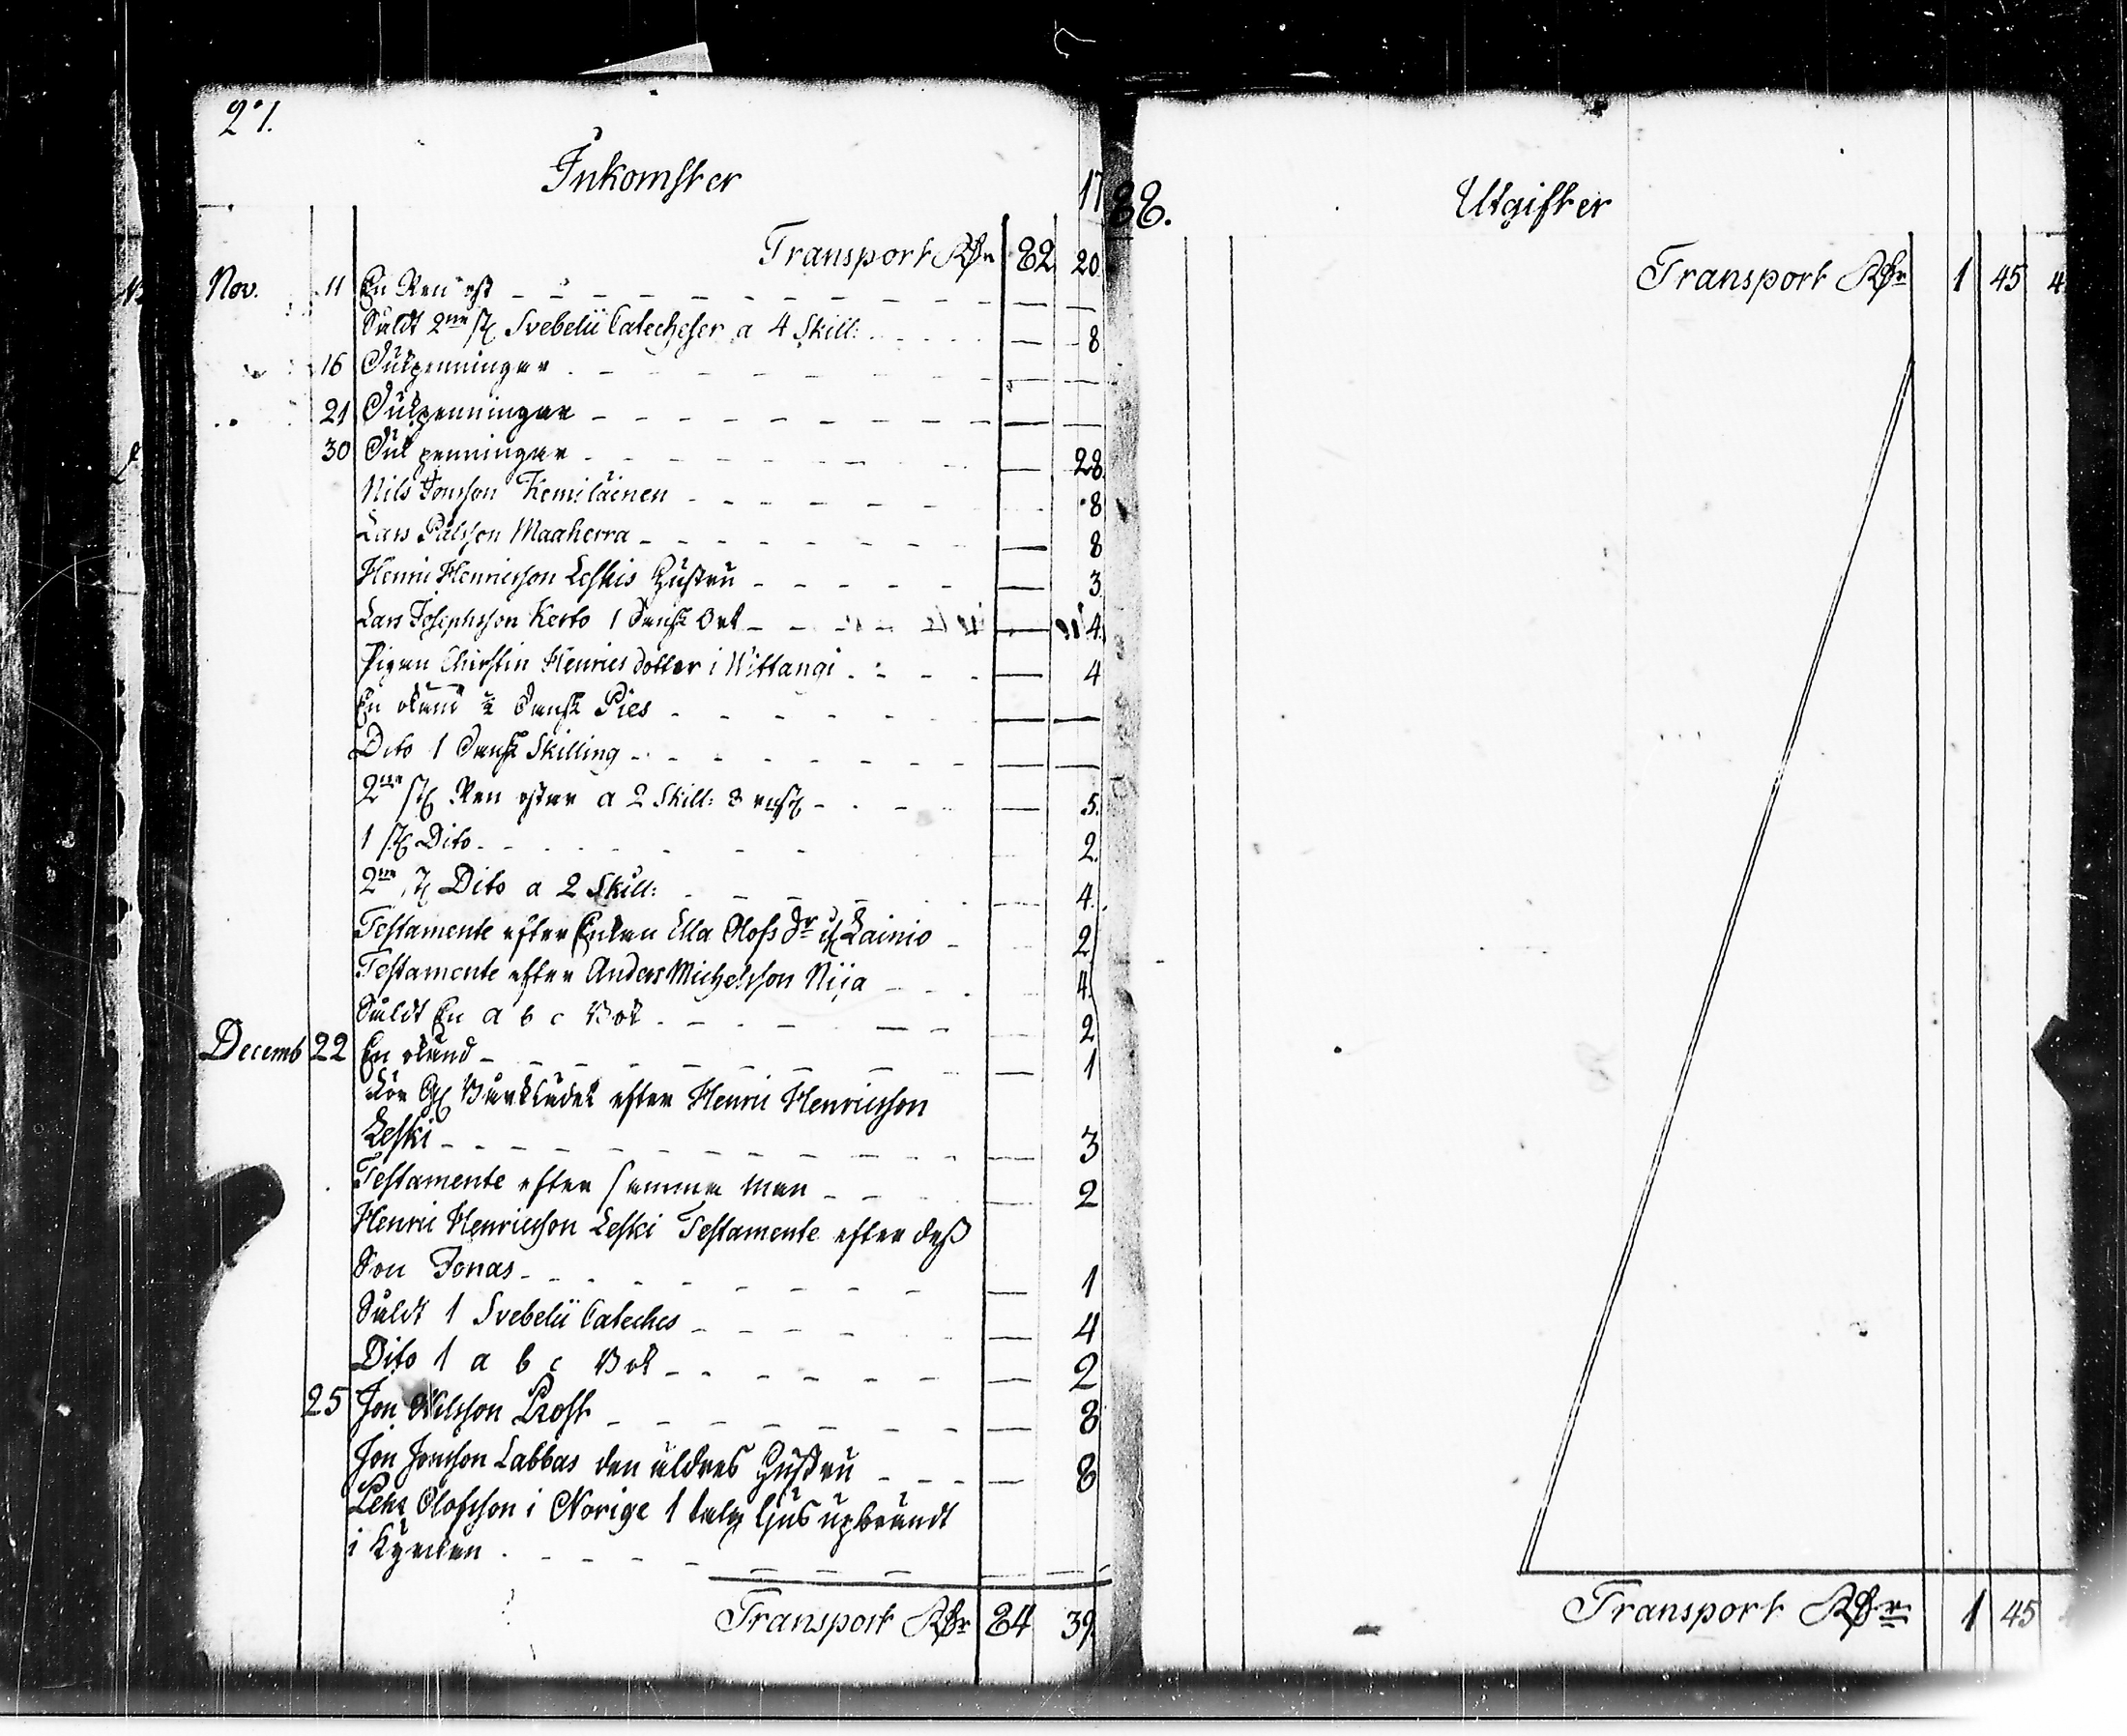 27.
Inkomster
17
Transport Rdr 82 20
Nov. 11 En Ren ost — —
Såldt 2ne st Svebelii Catecheser a 4 Skill: — 8
16 Julpenningar — —
21 Julpenningar — —
30 Julpenningar — 28
Nils Jonsson Kemiläinen 8
Lars Pålsson Maaherra — 8
Henric Henricsson Leskis Hustru — 3
Lars Josephsson Kerto 1 Dansk Ort — 4
Pigan Christin Henricsdotter i Wittangi — 4
En okänd ½ Dansk Pies — —
Dito 1 Dansk Skilling — —
2ne st Ren ostar a 2 Skill: 8 — 5.
1 st Dito 2.
2ne st Dito a 2 Skill: — 4.
Testamente efter Enkan Ella Olofs dr Lainio 2
Testamente efter Anders Michelsson Niia 4.
Såldt En a b c Bok 2
Decemb 22 En okänd — 1
för Bårklädet efter Henric Henricsson
Leski — 3
Testamente efter samma man — 2
Henric Henricsson Leski Testamente efter dess
Son Jonas — 1
Såldt 1 Svebelii Cateches — 4
Dito 1 a b c Bok — 2
25 Jon Nilsson Prost — 8
Jon Jonsson Labbas den äldres Hustru — 8
Olofsson i Norige 1 talg ljus upbrändt
i Kyrckan — —
Transport Rdr 84 39
88.
Utgifter
Transport Rdr 1 45 4
Transport Rdr 1 45